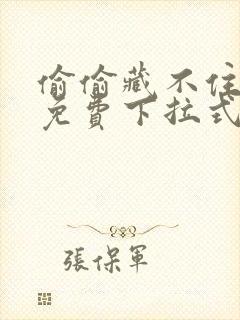 偷偷藏不住
免費下拉式
張保軍